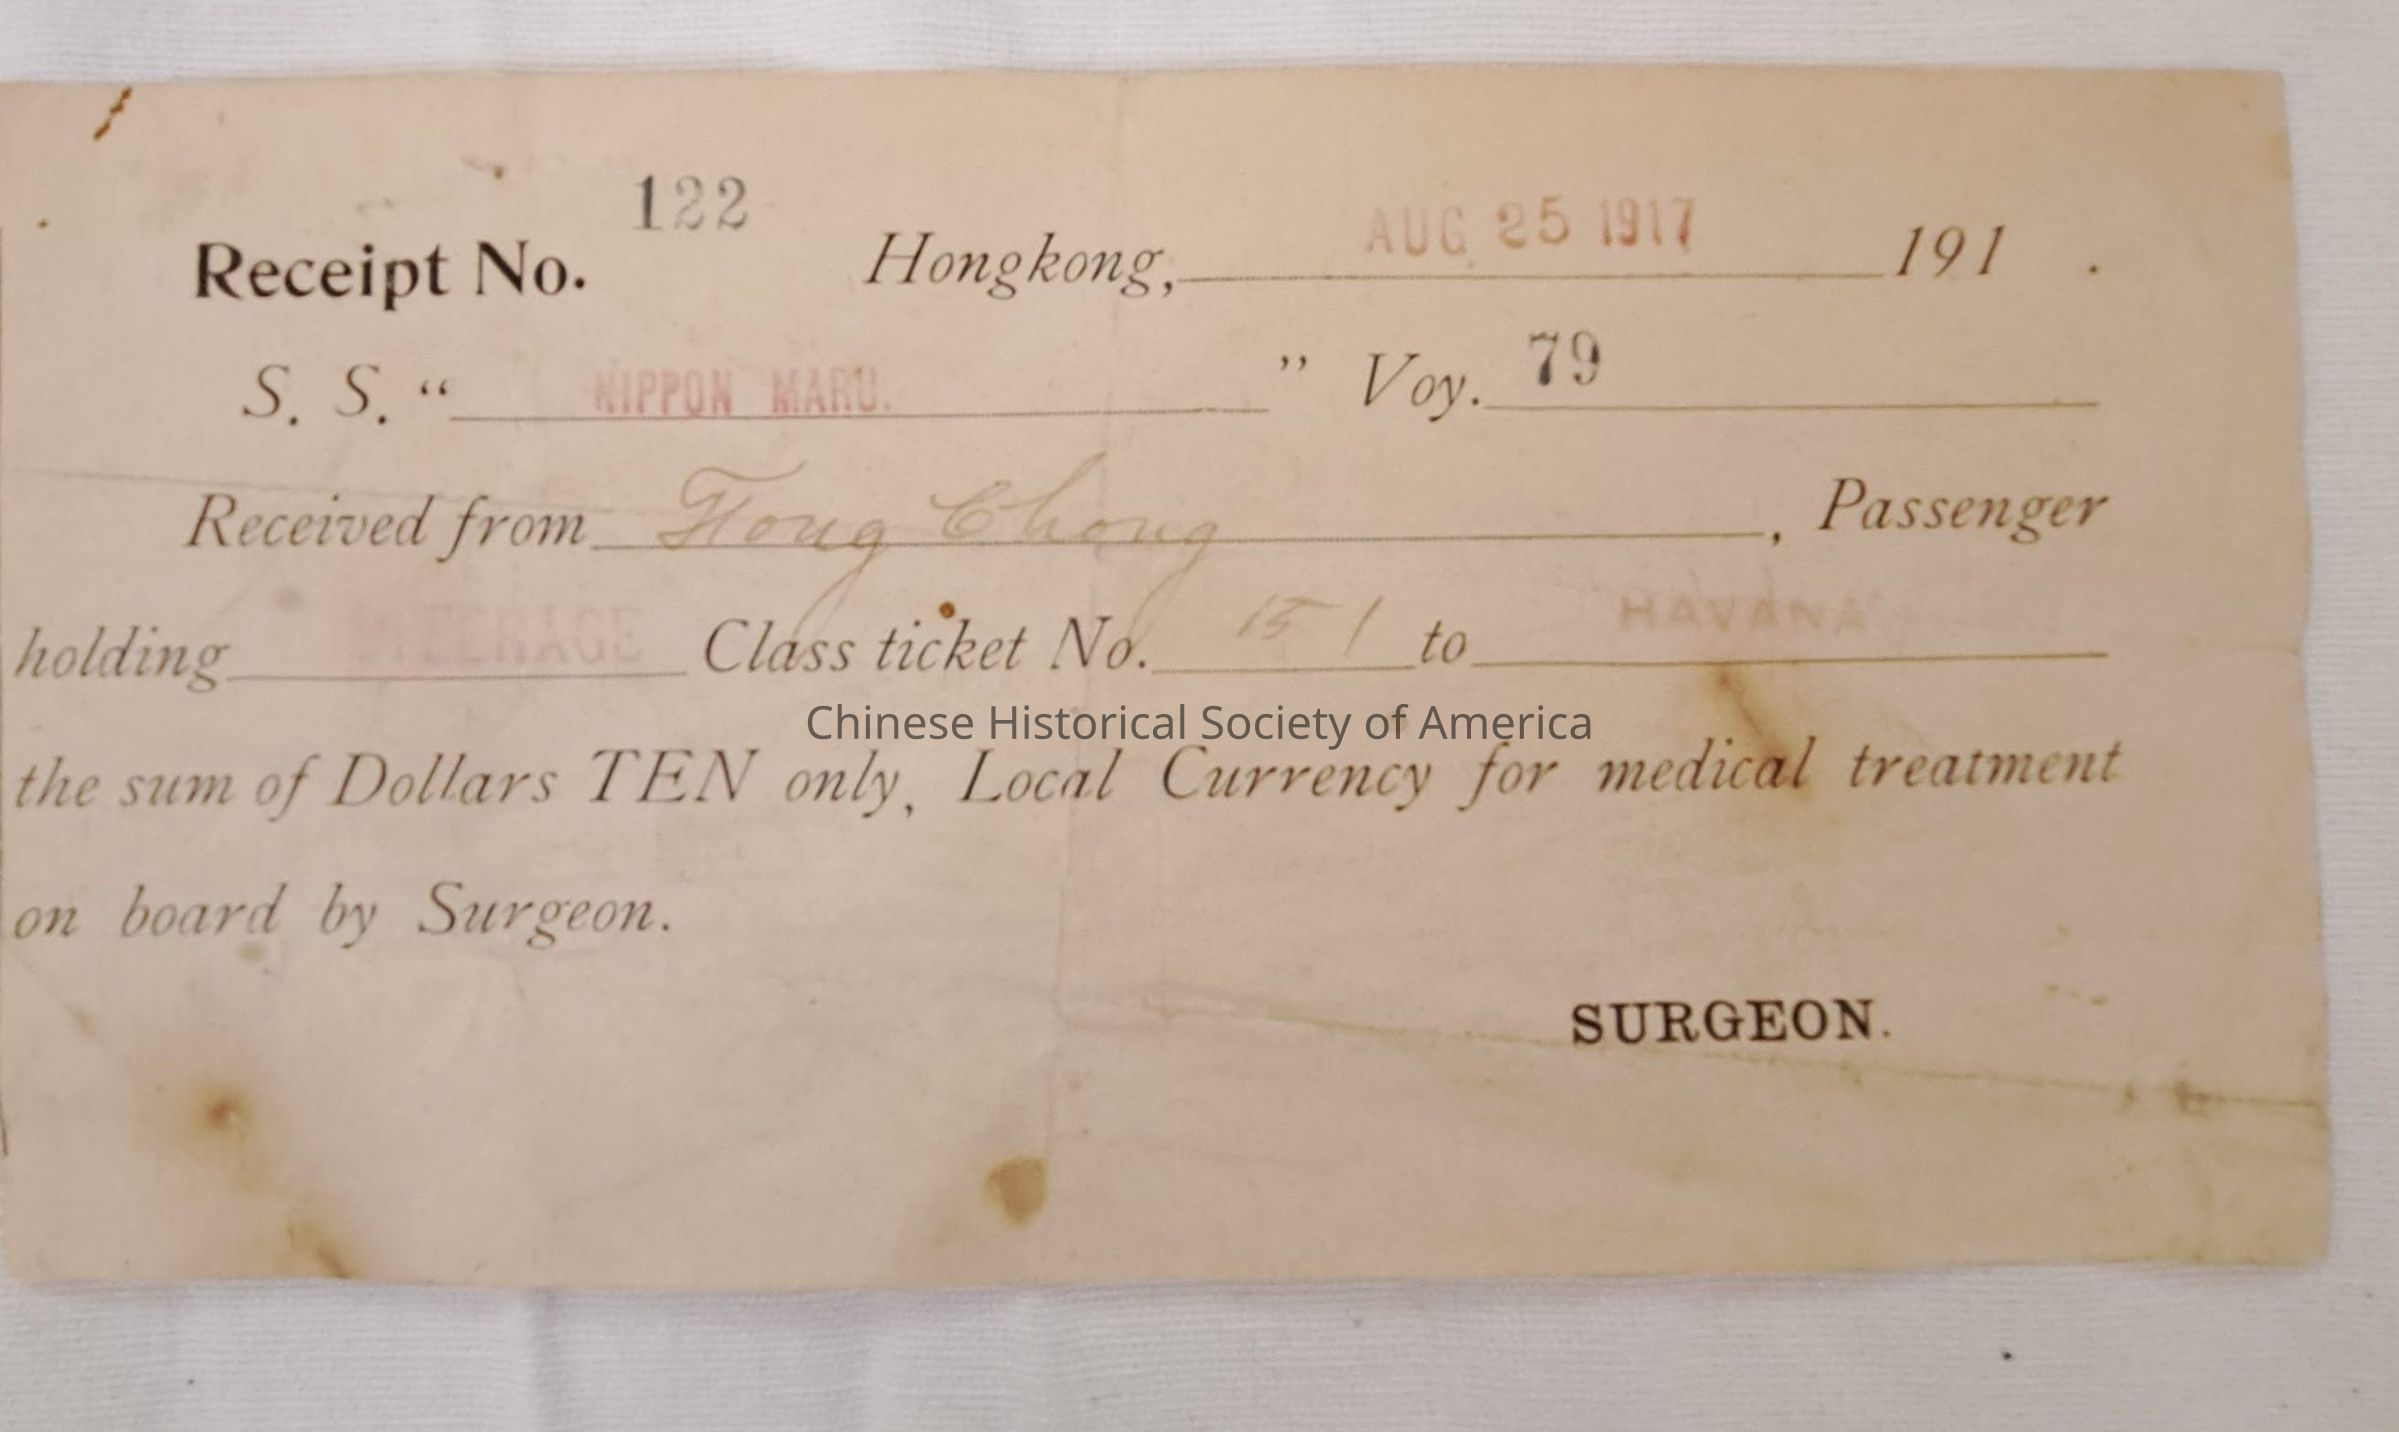 Receipt No. 122 Hongkong, AUG 25 1917 191 .
S. S. “ NIPPON MARU. ” Voy. 79
Received from Fong Chong , Passenger
holding STEERAGE Class ticket No. 151 to HAVANA
Chinese Historical Society of America
the sum of Dollars TEN only, Local Currency for medical treatment
on board by Surgeon.
SURGEON.